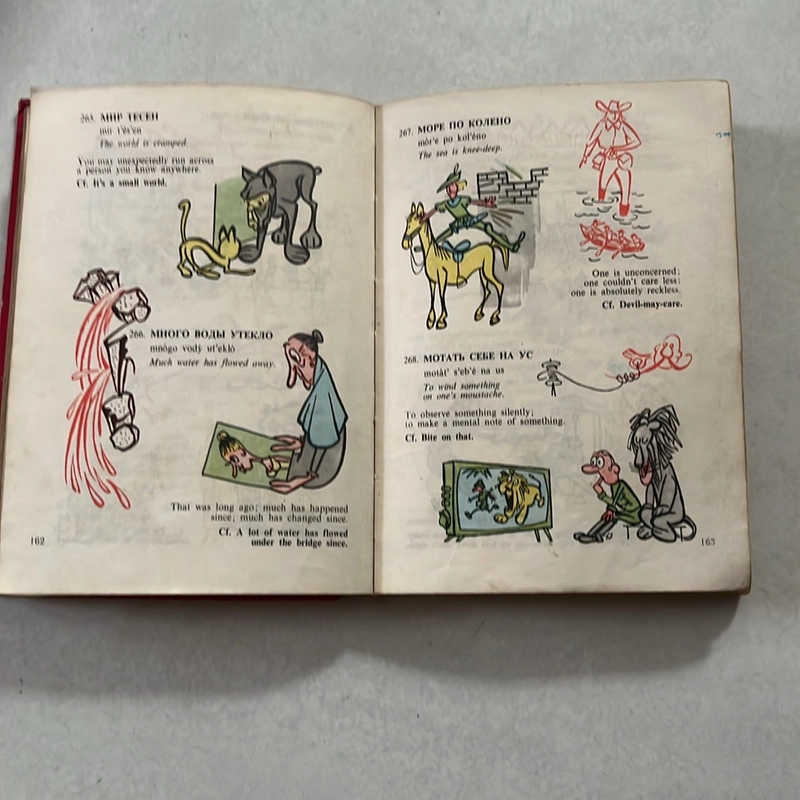 265. МИР ТЕСЕН
mir t'ésen
The world is cramped.
You may unexpectedly run across
a person you know anywhere.
Cf. It's a small world.
266. МНОГО ВОДЫ УТЕКЛО
mnógo vodý ut'ekló
Much water has flowed away.
That was long ago; much has happened
since; much has changed since.
Cf. A lot of water has flowed
under the bridge since.
162
267. МОРЕ ПО КОЛЕНО
mór'e po kol'éno
The sea is knee-deep.
One is unconcerned;
one couldn't care less;
one is absolutely reckless.
Cf. Devil-may-care.
268. МОТАТЬ СЕБЕ НА УС
motát' s'eb'é na us
To wind something
on one's moustache.
To observe something silently;
to make a mental note of something.
Cf. Bite on that.
163